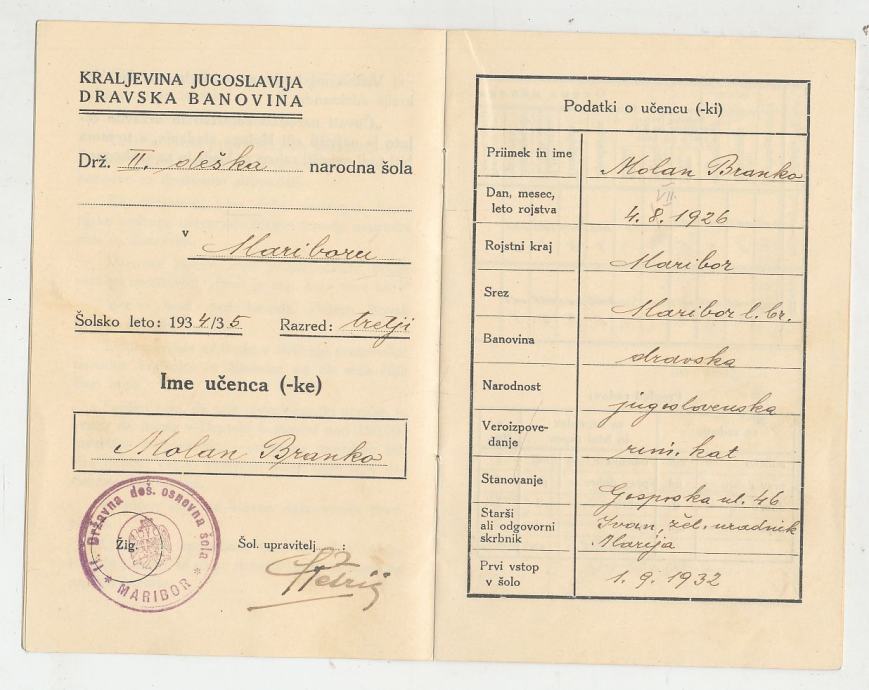 KRALJEVINA JUGOSLAVIJA
DRAVSKA BANOVINA
Drž. II. deška narodna šola
v Mariboru
Šolsko leto: 1934/35 Razred: tretji
Ime učenca (-ke)
Molan Branko
II. Državna deš. osnovna šola
* MARIBOR *
Žig.
Šol. upravitelj :
Podatki o učencu (-ki)
Priimek in ime Molan Branko
Dan, mesec, leto rojstva
VII.
4. 8. 1926
Rojstni kraj Maribor
Srez Maribor l. br.
Banovina dravska
Narodnost jugoslovenska
Veroizpove-
danje rim. kat
Stanovanje Gosposka ul. 46
Starši
ali odgovorni
skrbnik
Ivan, žel. uradnik
Marija
Prvi vstop
v šolo 1. 9. 1932